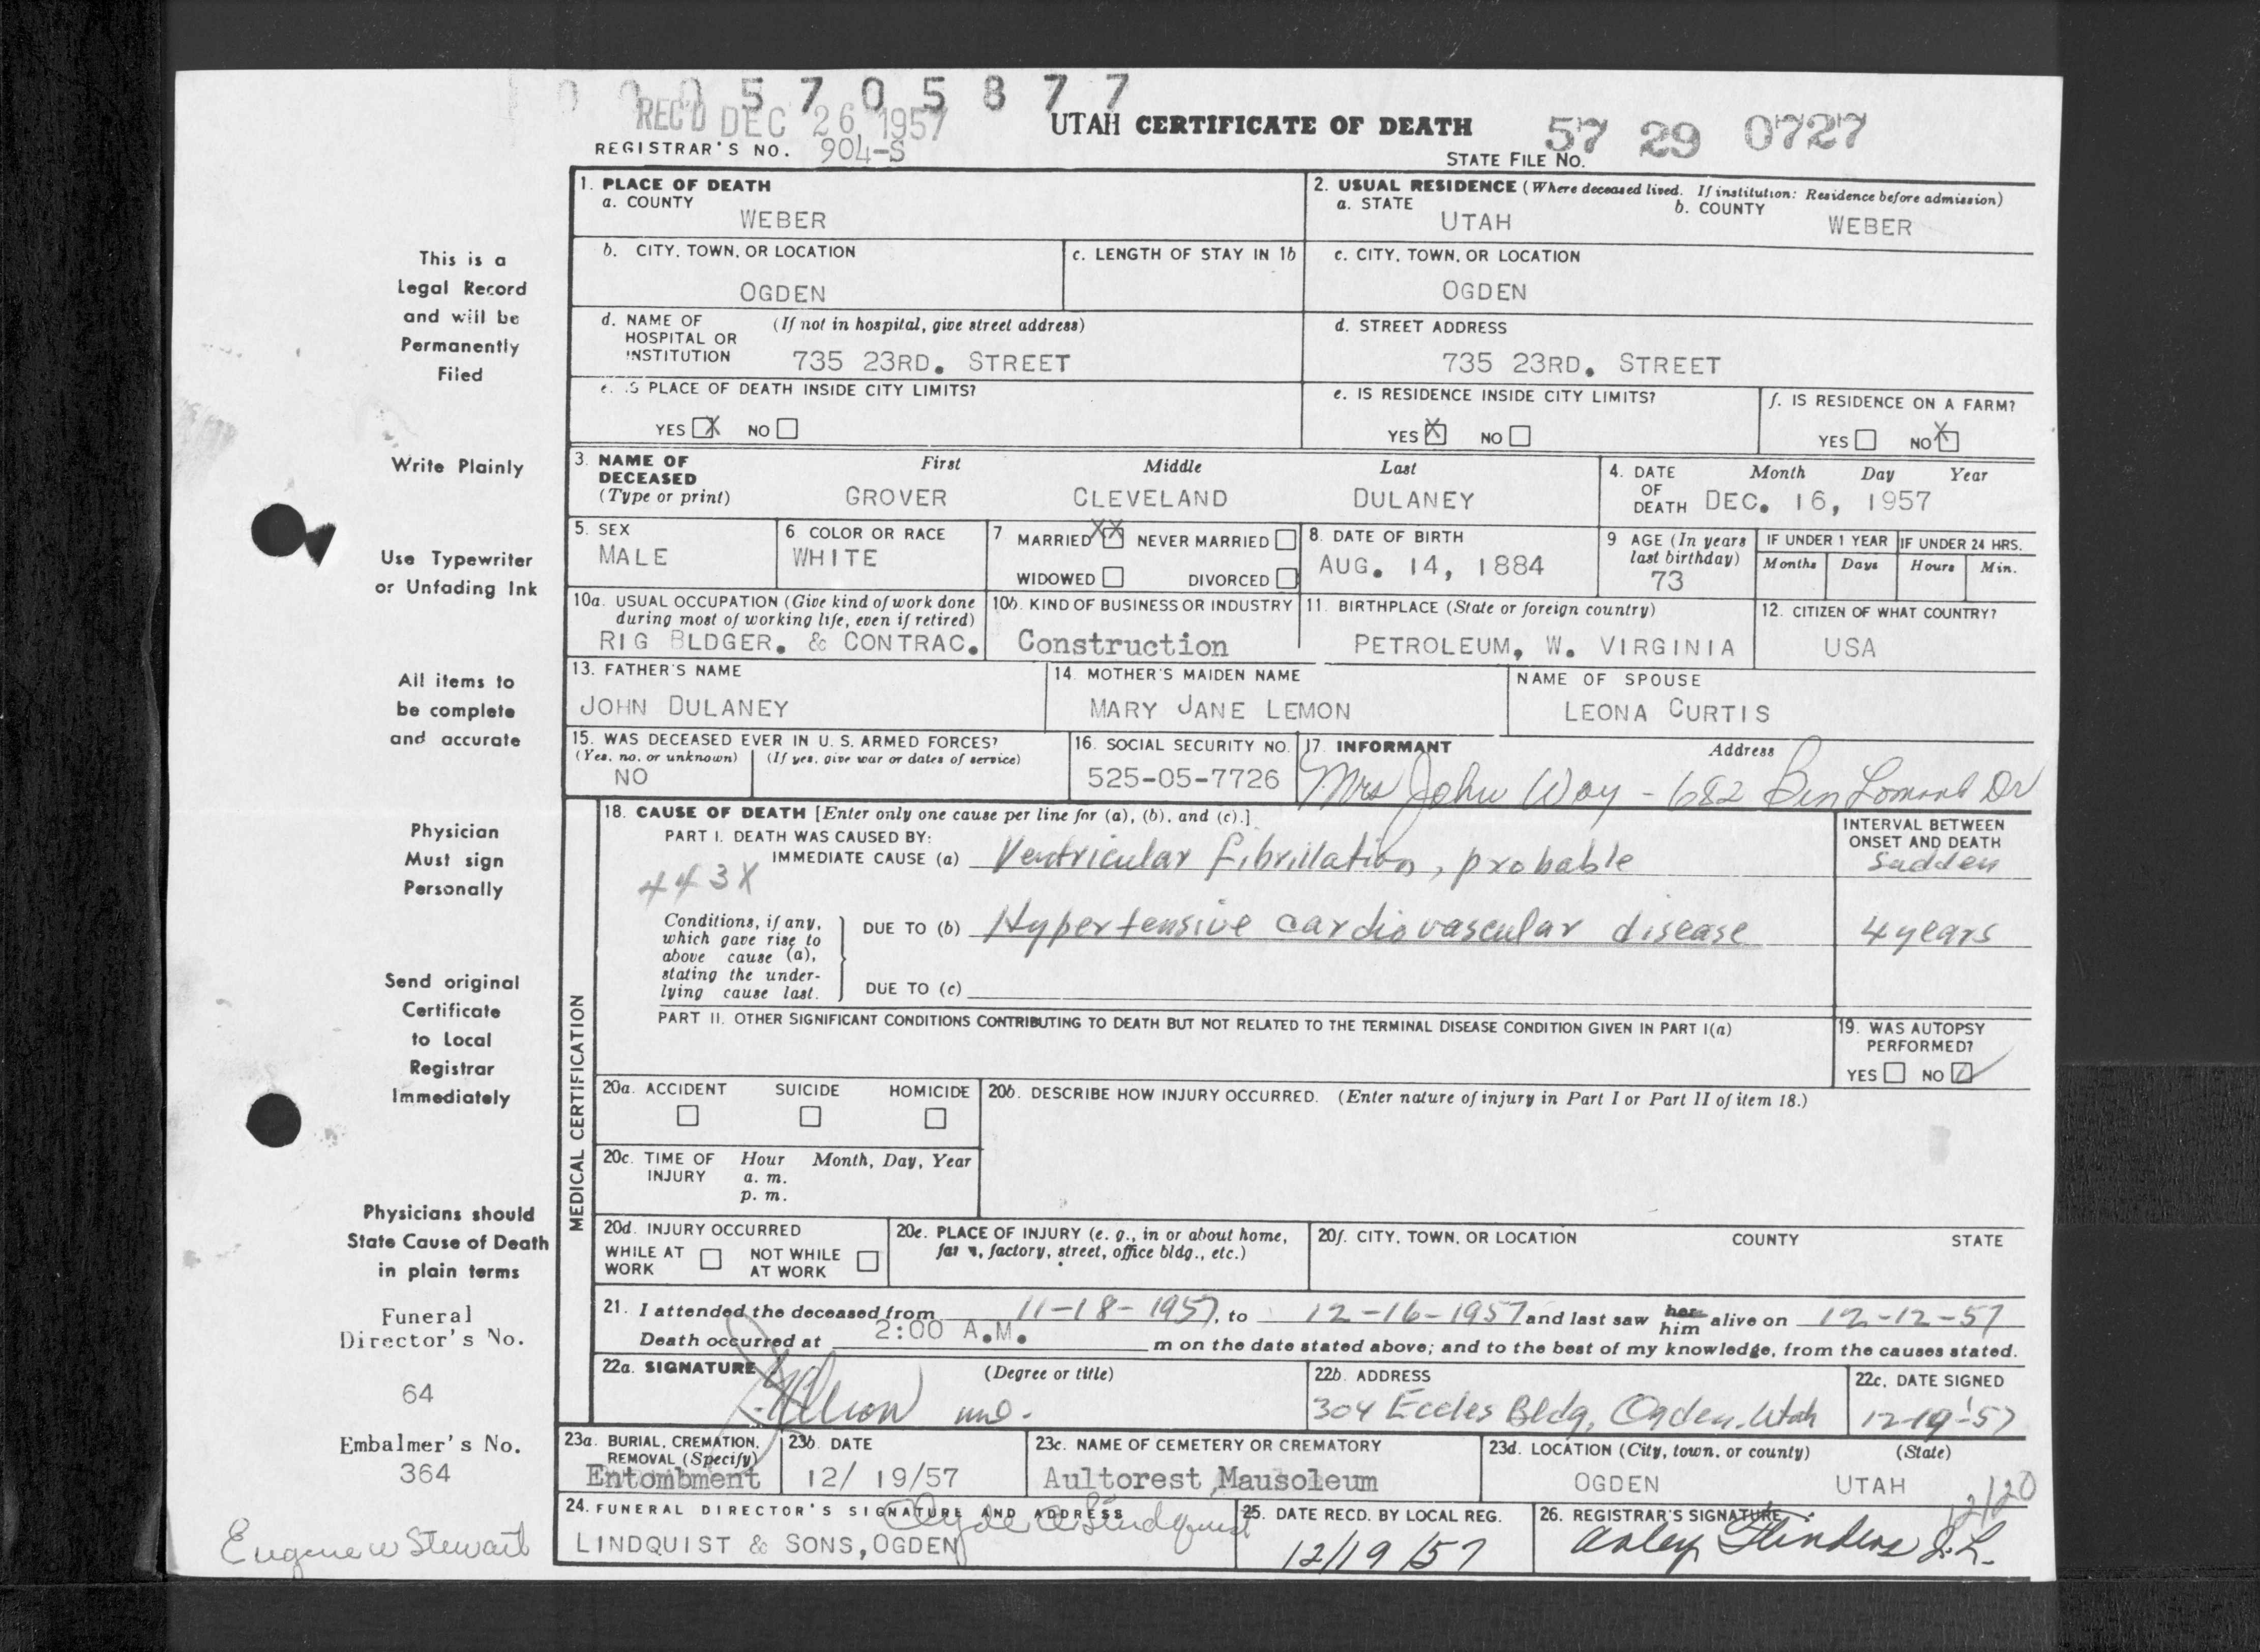 0 0 0 5 7 0 5 8 7 7
REC'D DEC 26 1957
UTAH CERTIFICATE OF DEATH
57 29 0727
REGISTRAR'S NO. 904-S
STATE FILE NO.
1. PLACE OF DEATH
a. COUNTY
WEBER
2. USUAL RESIDENCE (Where deceased lived. If institution: Residence before admission)
a. STATE
UTAH
b. COUNTY
WEBER
b. CITY, TOWN, OR LOCATION
OGDEN
c. LENGTH OF STAY IN 1b
c. CITY, TOWN, OR LOCATION
OGDEN
d. NAME OF HOSPITAL OR INSTITUTION
(If not in hospital, give street address)
735 23RD. STREET
d. STREET ADDRESS
735 23RD. STREET
e. IS PLACE OF DEATH INSIDE CITY LIMITS?
YES X NO
e. IS RESIDENCE INSIDE CITY LIMITS?
YES X NO
f. IS RESIDENCE ON A FARM?
YES NO X
3. NAME OF DECEASED (Type or print)
First Middle Last
GROVER CLEVELAND DULANEY
4. DATE OF DEATH
Month Day Year
DEC. 16, 1957
5. SEX
MALE
6 COLOR OR RACE
WHITE
7 MARRIED XX NEVER MARRIED
WIDOWED DIVORCED
8. DATE OF BIRTH
AUG. 14, 1884
9 AGE (In years last birthday)
73
IF UNDER 1 YEAR
Months Days
IF UNDER 24 HRS.
Hours Min.
10a. USUAL OCCUPATION (Give kind of work done during most of working life, even if retired)
RIG BLDGER. & CONTRAC.
10b. KIND OF BUSINESS OR INDUSTRY
Construction
11. BIRTHPLACE (State or foreign country)
PETROLEUM, W. VIRGINIA
12. CITIZEN OF WHAT COUNTRY?
USA
13. FATHER'S NAME
JOHN DULANEY
14. MOTHER'S MAIDEN NAME
MARY JANE LEMON
NAME OF SPOUSE
LEONA CURTIS
15. WAS DECEASED EVER IN U. S. ARMED FORCES?
(Yes, no, or unknown) (If yes, give war or dates of service)
NO
16. SOCIAL SECURITY NO.
525-05-7726
17. INFORMANT Address
Mrs John Way - 682 Ben Lomond Dr
18. CAUSE OF DEATH [Enter only one cause per line for (a), (b), and (c).]
PART I. DEATH WAS CAUSED BY:
IMMEDIATE CAUSE (a) Ventricular fibrillation, probable
443X
INTERVAL BETWEEN ONSET AND DEATH
Sudden
Conditions, if any, which gave rise to above cause (a), stating the underlying cause last.
DUE TO (b) Hypertensive cardiovascular disease
4 years
DUE TO (c)
PART II. OTHER SIGNIFICANT CONDITIONS CONTRIBUTING TO DEATH BUT NOT RELATED TO THE TERMINAL DISEASE CONDITION GIVEN IN PART I(a)
19. WAS AUTOPSY PERFORMED?
YES NO
MEDICAL CERTIFICATION
20a. ACCIDENT SUICIDE HOMICIDE
20b. DESCRIBE HOW INJURY OCCURRED. (Enter nature of injury in Part I or Part II of item 18.)
20c. TIME OF INJURY
Hour Month, Day, Year
a. m.
p. m.
20d. INJURY OCCURRED
WHILE AT WORK NOT WHILE AT WORK
20e. PLACE OF INJURY (e. g., in or about home, farm, factory, street, office bldg., etc.)
20f. CITY, TOWN, OR LOCATION COUNTY STATE
21. I attended the deceased from 11-18-1957, to 12-16-1957 and last saw her him alive on 12-12-57
Death occurred at 2:00 A.M. m on the date stated above; and to the best of my knowledge, from the causes stated.
22a. SIGNATURE (Degree or title)
22b. ADDRESS
304 Eccles Bldg, Ogden, Utah
22c. DATE SIGNED
12-19-57
23a. BURIAL, CREMATION, REMOVAL (Specify)
Entombment
23b. DATE
12/ 19/57
23c. NAME OF CEMETERY OR CREMATORY
Aultorest Mausoleum
23d. LOCATION (City, town, or county) (State)
OGDEN UTAH
12/20
24. FUNERAL DIRECTOR'S SIGNATURE AND ADDRESS
Clyde A Lindquist
LINDQUIST & SONS, OGDEN
25. DATE RECD. BY LOCAL REG.
12/19/57
26. REGISTRAR'S SIGNATURE
This is a
Legal Record
and will be
Permanently
Filed
Write Plainly
Use Typewriter
or Unfading Ink
All items to
be complete
and accurate
Physician
Must sign
Personally
Send original
Certificate
to Local
Registrar
Immediately
Physicians should
State Cause of Death
in plain terms
Funeral
Director's No.
64
Embalmer's No.
364
Eugene W Stewart